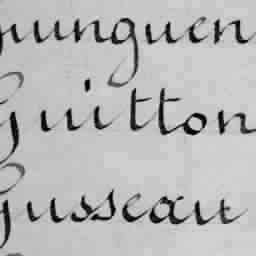 Guinguen
Guitton
Gusseau